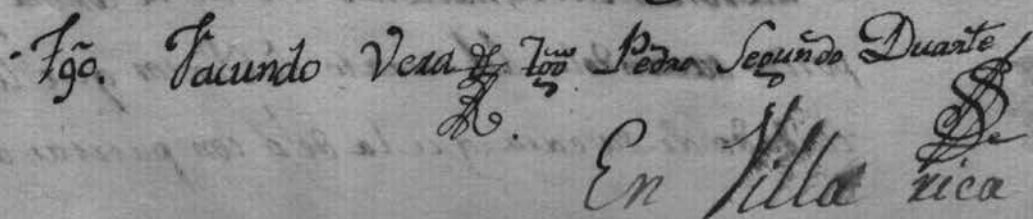 Tgõ. Facundo Vera Tgõ Pedro Segundo Duarte
En Villa rica